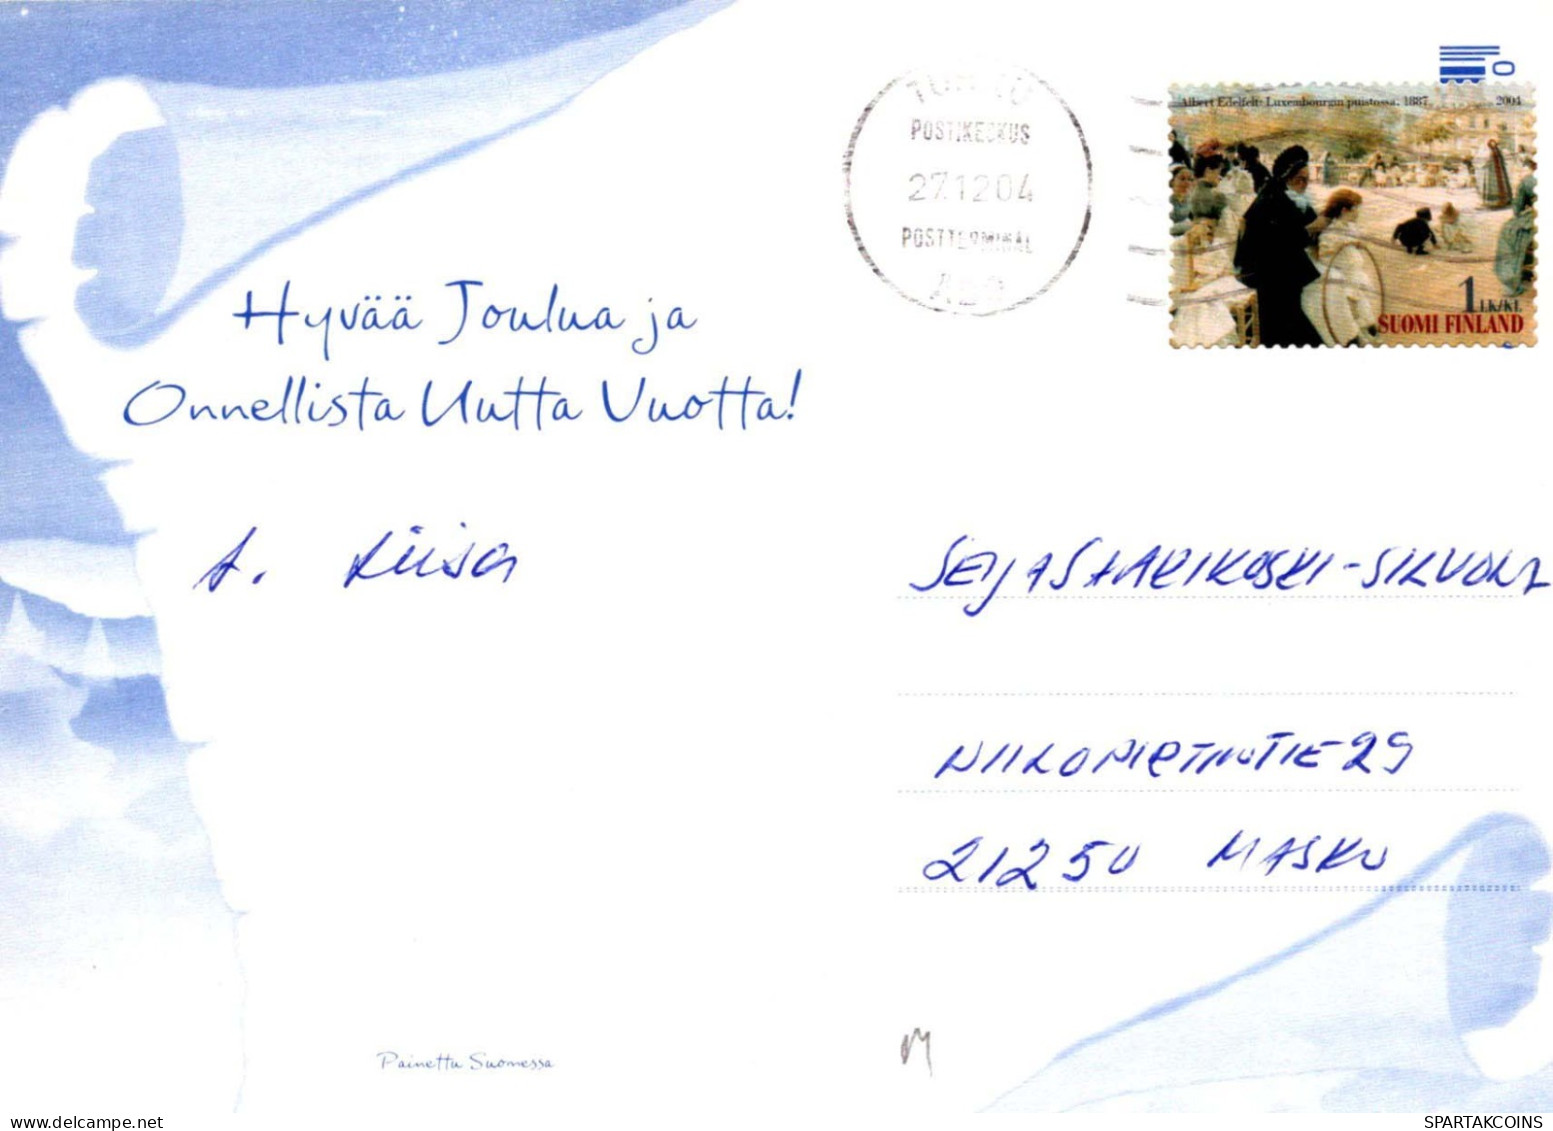 Albert Edelfelt: Luxembourgin puistossa, 1887 2004
POSTIKESKUS
27.12.04
POSTTERMINAL
1 LK/KL
SUOMI FINLAND
Hyvää Joulua ja
Onnellista Uutta Vuotta!
t. Liisa
SEIJA SAARIKOSKI-SILVOLA
NIILOPIETINTIE 29
21250 MASKU
Painettu Suomessa
M
www.delcampe.net
SPARTAKCOINS